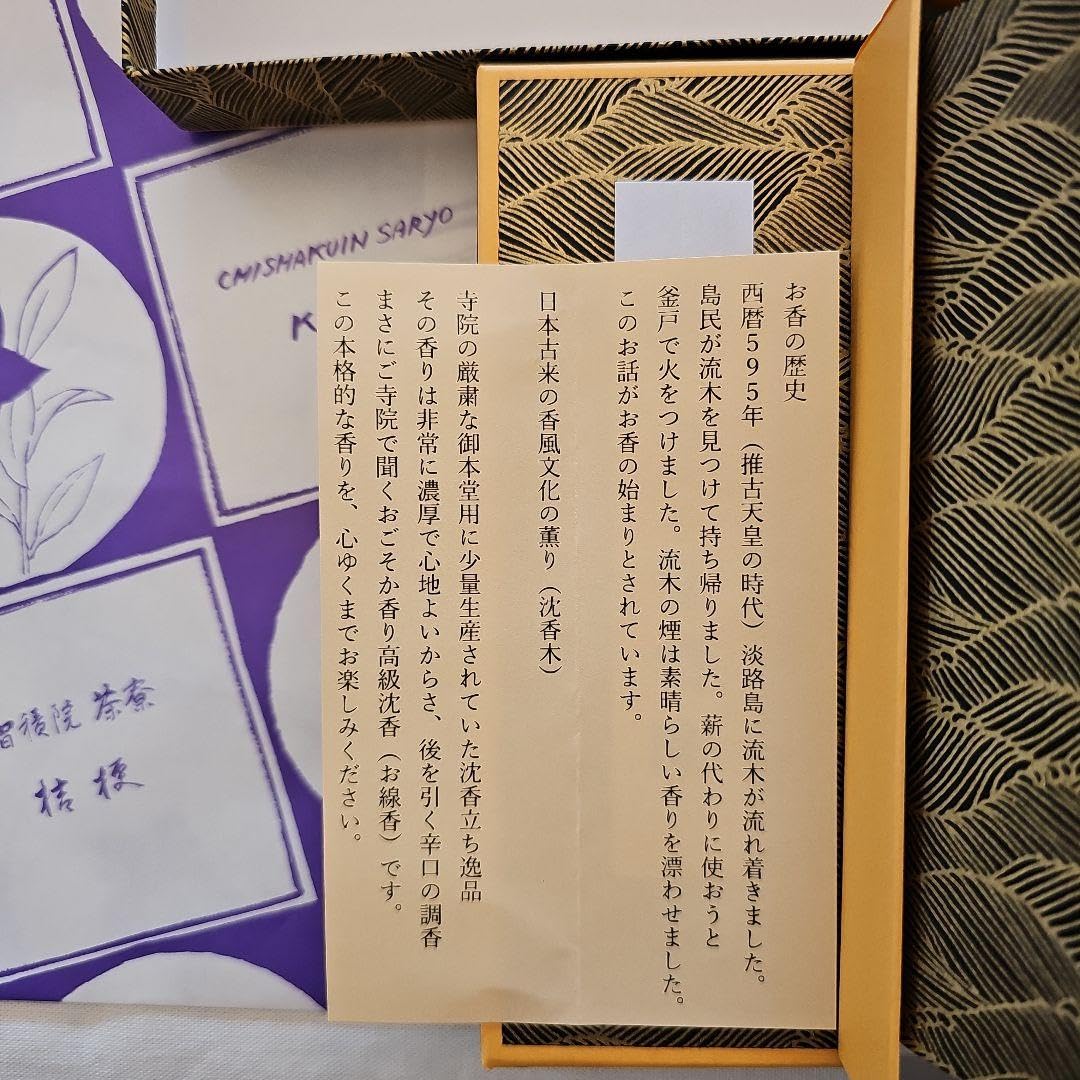 お香の歴史
西暦595年（推古天皇の時代）淡路島に流木が流れ着きました。
島民が流木を見つけて持ち帰りました。薪の代わりに使おうと
釜戸で火をつけました。流木の煙は素晴らしい香りを漂わせました。
このお話がお香の始まりとされています。
日本古来の香風文化の薫り（沈香木）
寺院の厳粛な御本堂用に少量生産されていた沈香立ち逸品
その香りは非常に濃厚で心地よいからさ、後を引く辛口の調香
まさにご寺院で聞くおごそか香り高級沈香（お線香）です。
この本格的な香りを、心ゆくまでお楽しみください。
CHISHAKUIN SARYO
K
智積院 茶寮
桔梗